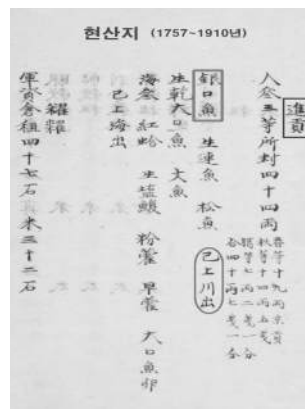 현산지 (1757~1910년)
進貢
人參三等所封四十四兩
春等十九兩京貢
秋等十四兩五戔
臘等七兩二戔一分
合四十兩七戔一分
銀口魚 生連魚 松魚 已上川出
生乾大口魚 文魚
海參 紅蛤 生塩鰒 粉藿 早藿 大口魚卵
已上海出
糶糴
軍資倉租四十七石 米三十二石